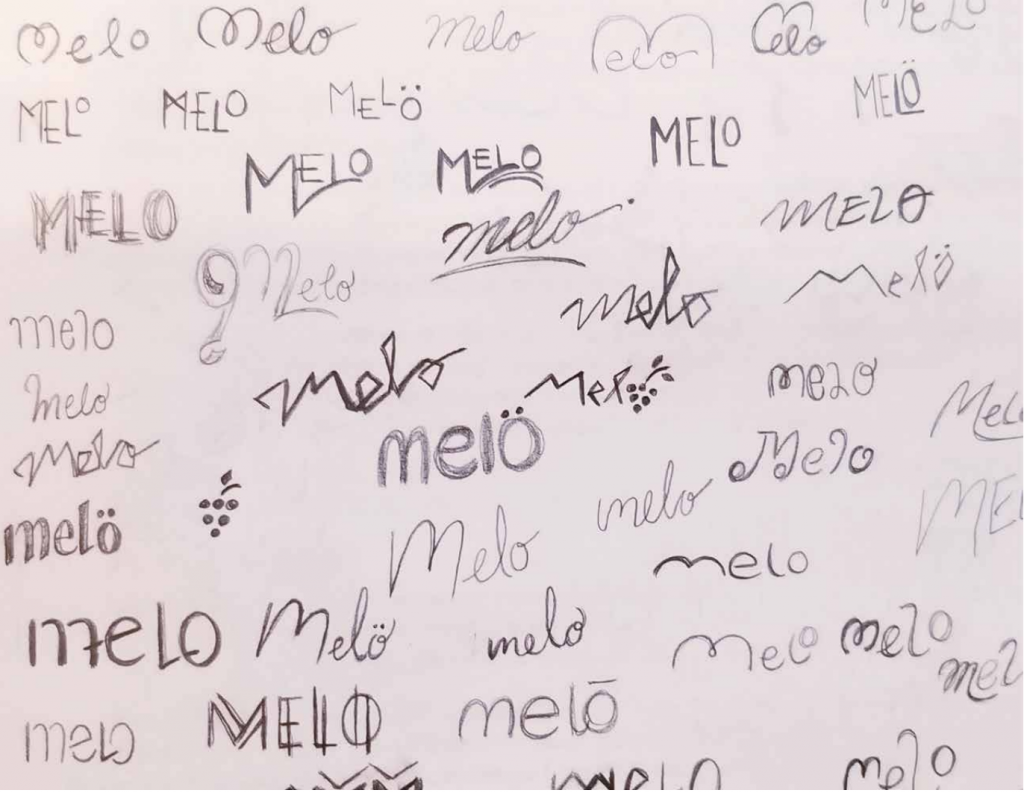 Melo Melo Melo Melo Melo MELO
MELO MELO MELÖ MELO MELÖ
MELO MELO
MELO melo MELO
Melo melo Melö
melo
melo melo Melo melo
melo melö Melo Mel
melo
melö melo
Melo melo ME
melo Melö melo Melo melo
mel
melo MELO melō
melo melo